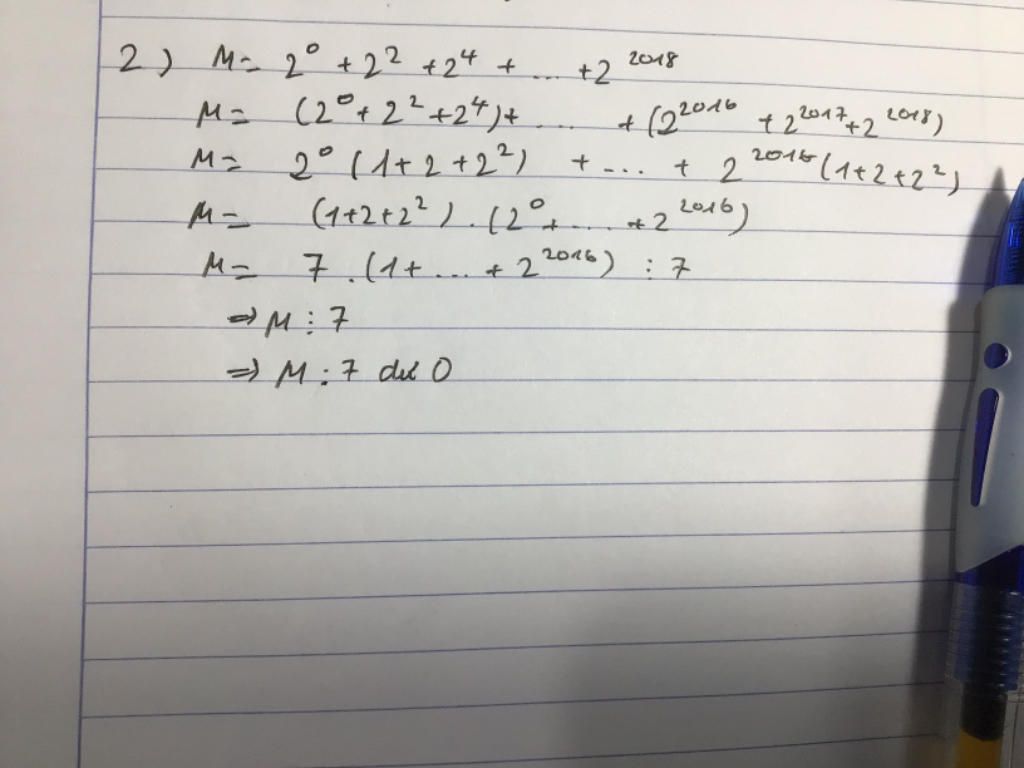 2) M = 2⁰ + 2² + 2⁴ + ... + 2²⁰¹⁸
M = (2⁰ + 2² + 2⁴) + ... + (2²⁰¹⁶ + 2²⁰¹⁷ + 2²⁰¹⁸)
M = 2⁰ (1 + 2 + 2²) + ... + 2²⁰¹⁶ (1 + 2 + 2²)
M = (1 + 2 + 2²) . (2⁰ + ... + 2²⁰¹⁶)
M = 7 . (1 + ... + 2²⁰¹⁶) : 7
⇒ M ⋮ 7
⇒ M : 7 dư 0